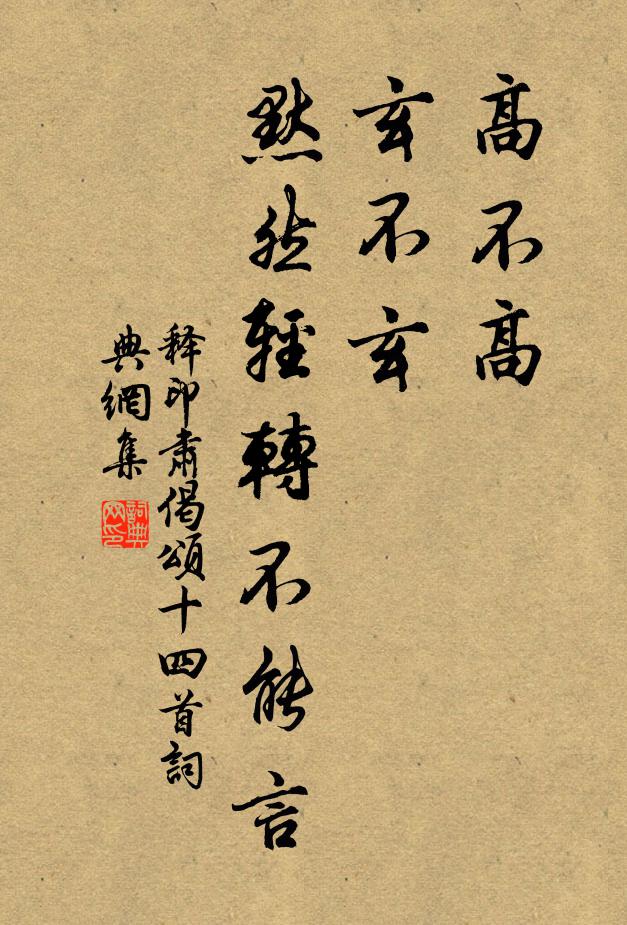 高不高
玄不玄
默然輕轉不能言
释印肅偈頌十四首詞
典網集
詞典
网印